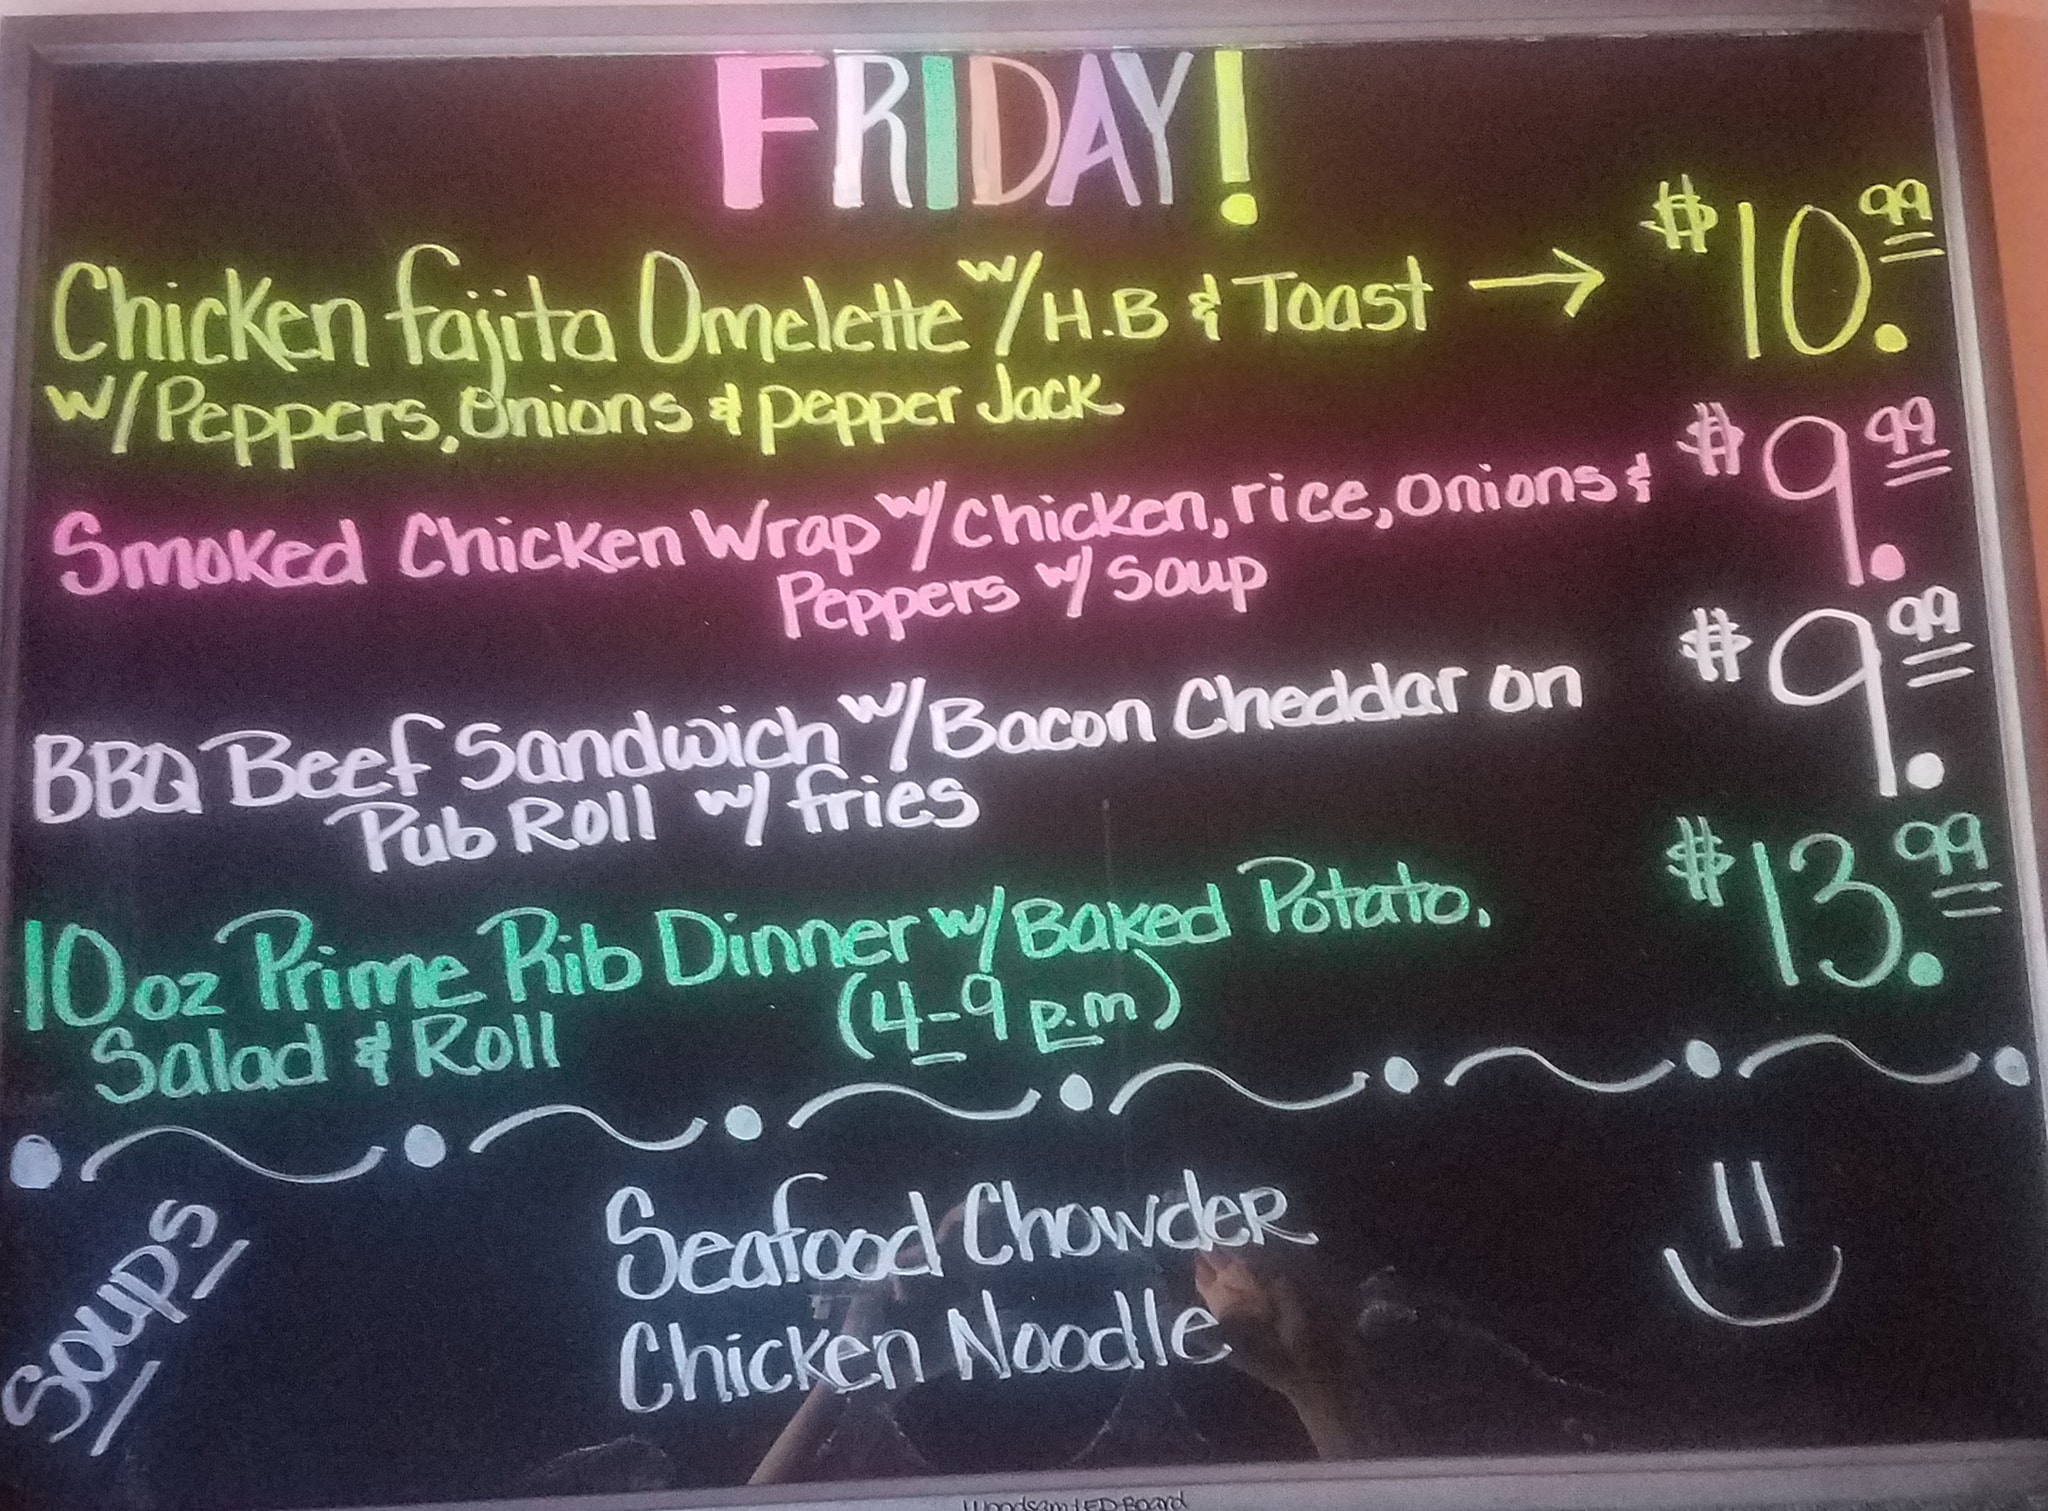 FRIDAY!
Chicken fajita Omelette w/ H.B & Toast → $10.99
w/ Peppers, Onions & pepper Jack
Smoked Chicken Wrap w/ Chicken, rice, onions & $9.99
Peppers w/ Soup
BBQ Beef Sandwich w/ Bacon Cheddar on $9.99
Pub Roll w/ fries
10oz Prime Rib Dinner w/ Baked Potato, $13.99
Salad & Roll (4-9 p.m)
Soups
Seafood Chowder
Chicken Noodle
LED Board